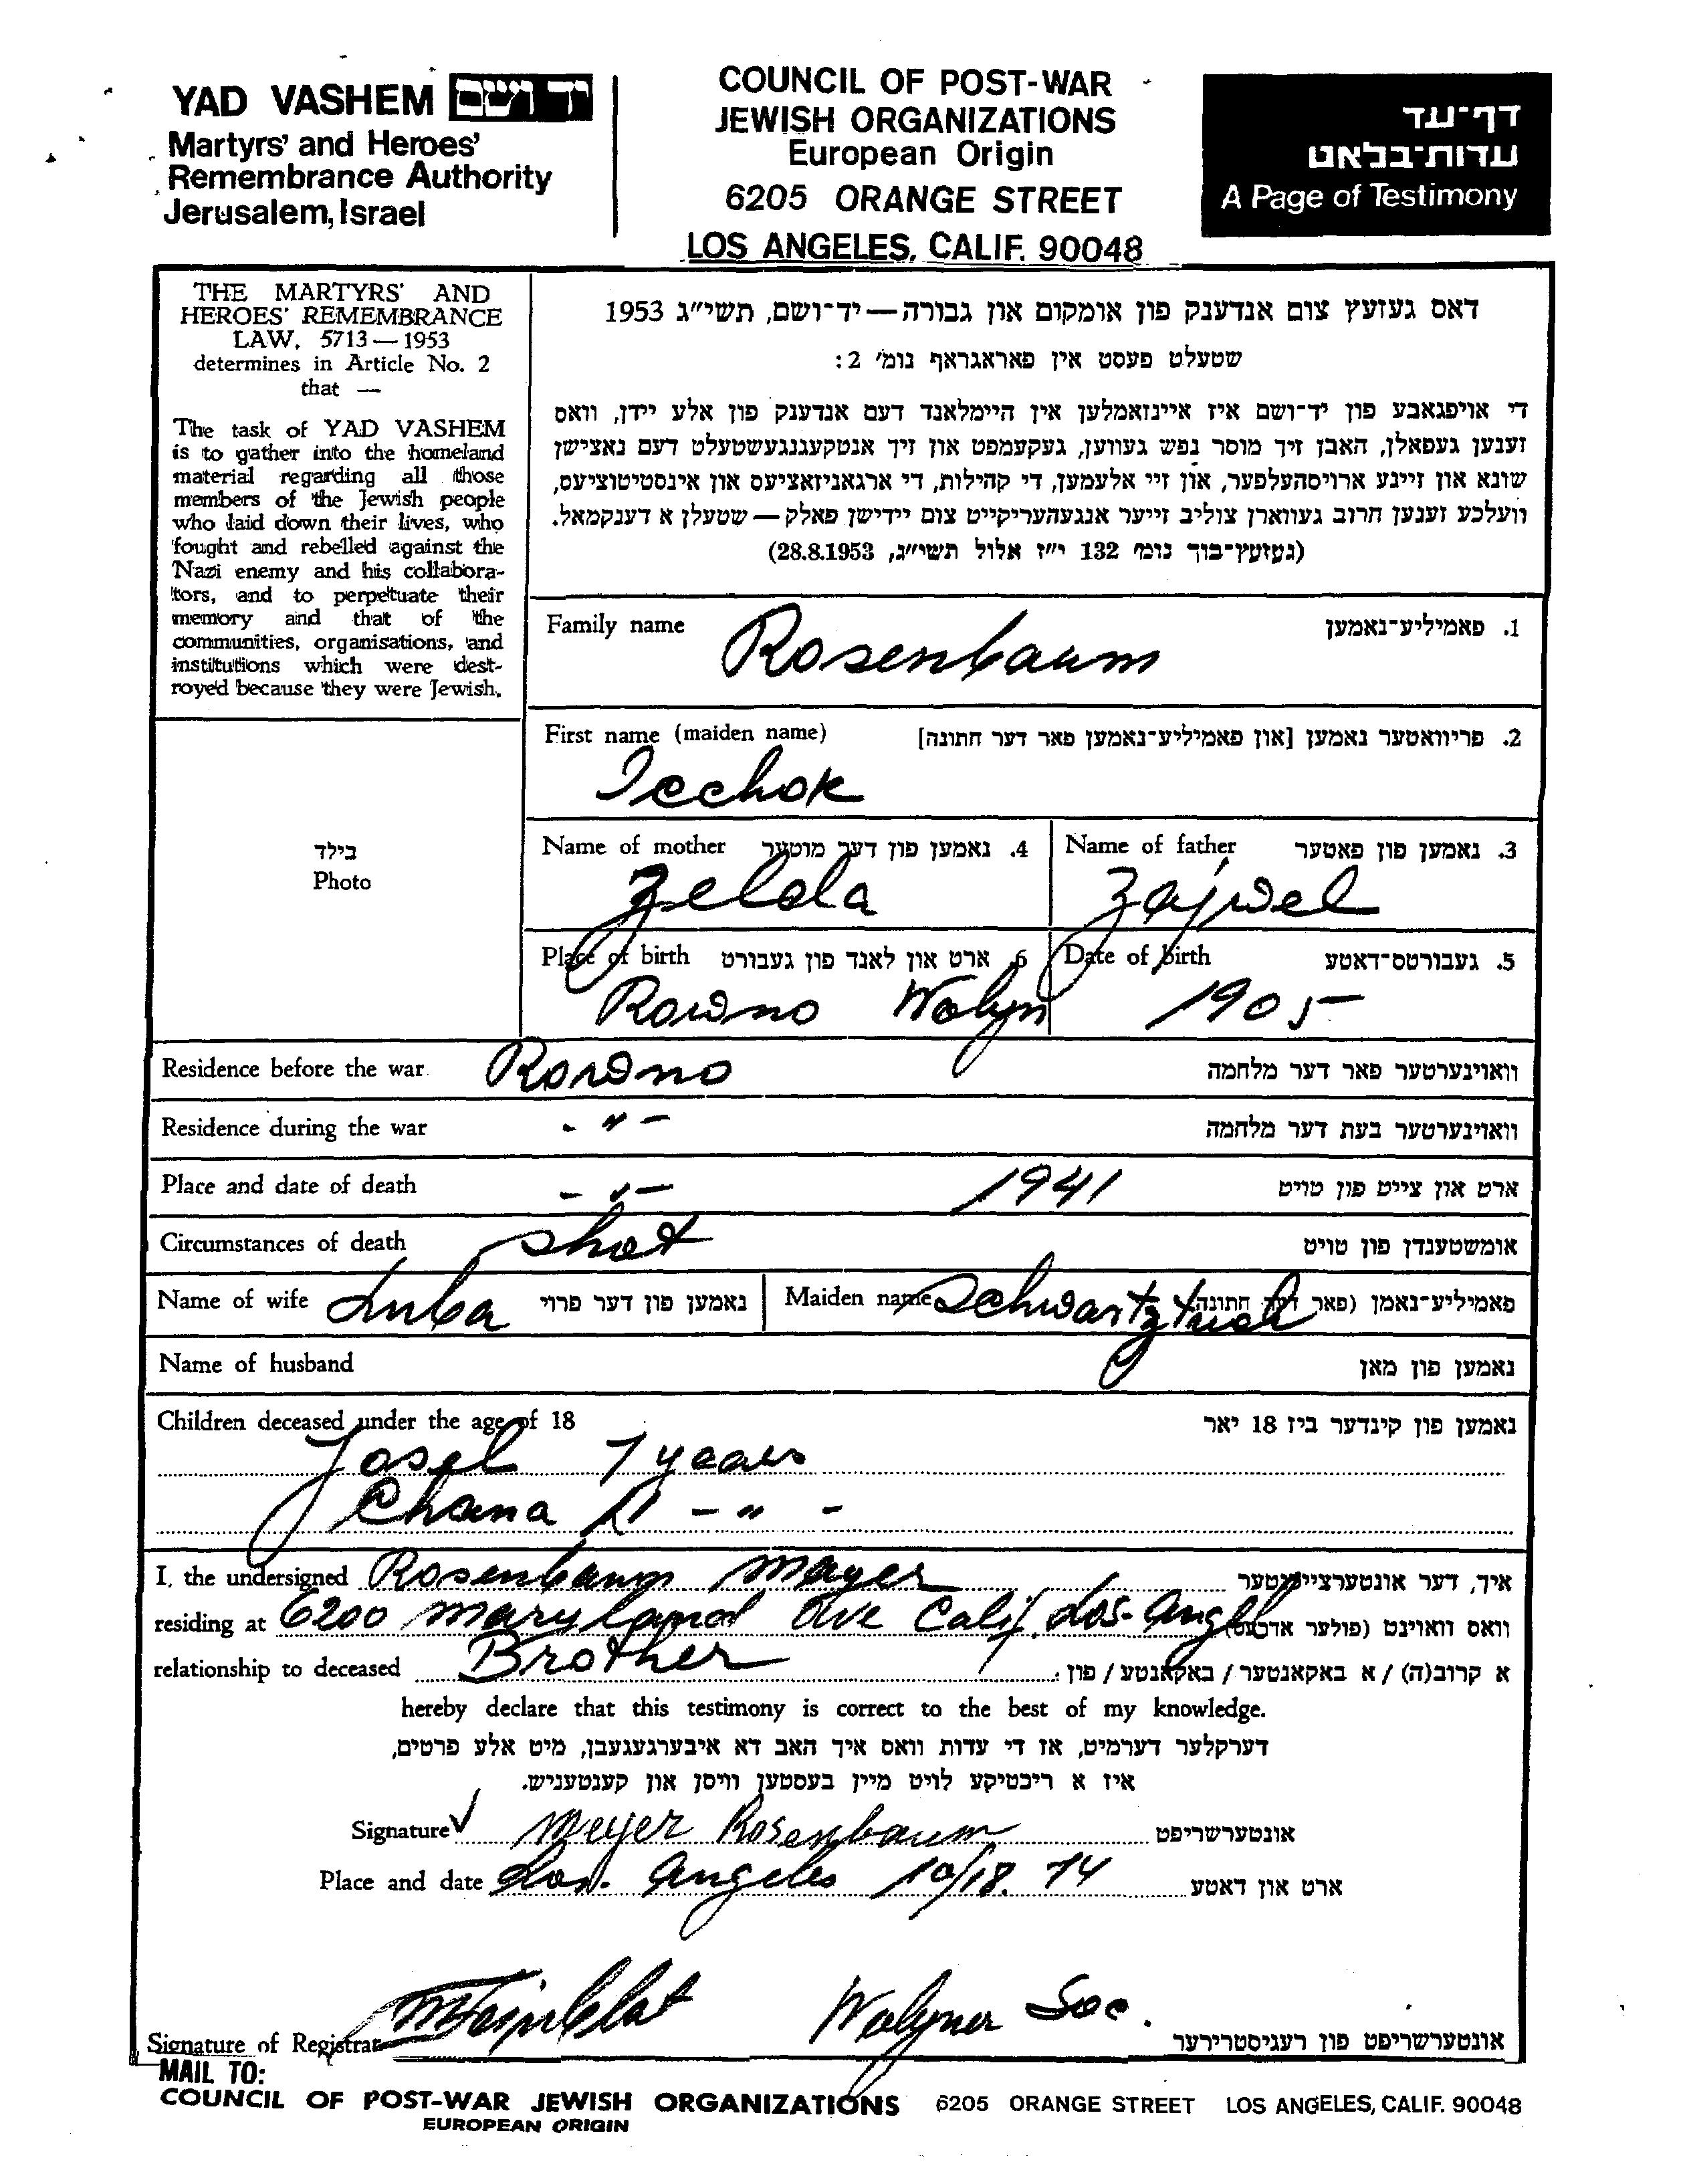 YAD VASHEM יד ושם
Martyrs' and Heroes'
Remembrance Authority
Jerusalem, Israel
COUNCIL OF POST-WAR
JEWISH ORGANIZATIONS
European Origin
6205 ORANGE STREET
LOS ANGELES, CALIF. 90048
דף-עד
עדות-בלאט
A Page of Testimony
THE MARTYRS' AND
HEROES' REMEMBRANCE
LAW, 5713 — 1953
determines in Article No. 2
that —
The task of YAD VASHEM
is to gather into the homeland
material regarding all those
members of the Jewish people
who laid down their lives, who
fought and rebelled against the
Nazi enemy and his collabora-
tors, and to perpetuate their
memory and that of the
communities, organisations, and
institutions which were dest-
royed because they were Jewish.
דאס געזעץ צום אנדענק פון אומקום און גבורה — יד-ושם, תשי"ג 1953
שטעלט פעסט אין פאראגראף נומ' 2:
די אויפגאבע פון יד-ושם איז איינזאמלען אין היימלאנד דעם אנדענק פון אלע יידן, וואס
זענען געפאלן, האבן זיך מוסר נפש געווען, געקעמפט און זיך אנטקעגנגעשטעלט דעם נאצישן
שונא און זיינע ארויסהעלפער, און זיי אלעמען, די קהילות, די ארגאניזאציעס און אינסטיטוציעס,
וועלכע זענען חרוב געווארן צוליב זייער אנגעהעריקייט צום יידישן פאלק — שטעלן א דענקמאל.
(געזעץ-בוך נומ' 132 י"ז אלול תשי"ג, 28.8.1953)
Family name Rosenbaum 1. פאמיליע-נאמען
First name (maiden name) 2. פריוואטער נאמען [און פאמיליע-נאמען פאר דער חתונה]
Icchok
Name of mother 4. נאמען פון דער מוטער Name of father 3. נאמען פון פאטער
Zelda Zajwel
Place of birth 6. ארט און לאנד פון געבורט Date of birth 5. געבורטס-דאטע
Rowno Wolyn 1905
Residence before the war Rowno וואוינערטער פאר דער מלחמה
Residence during the war - " - וואוינערטער בעת דער מלחמה
Place and date of death - " - 1941 ארט און צייט פון טויט
Circumstances of death shot אומשטענדן פון טויט
Name of wife Luba נאמען פון דער פרוי Maiden name Schwartztuch פאמיליע-נאמן (פאר דער חתונה)
Name of husband נאמען פון מאן
Children deceased under the age of 18 נאמען פון קינדער ביז 18 יאר
Josel 7 years
Chana 11 - " -
I, the undersigned Rosenbaum Mayer איך, דער אונטערצייכנטער
residing at 6200 Maryland Ave Calif. Los-Angel וואס וואוינט (פולער אדרעס)
relationship to deceased Brother א קרוב(ה) / א באקאנטער / באקאנטע / פון:
hereby declare that this testimony is correct to the best of my knowledge.
דערקלער דערמיט, אז די עדות וואס איך האב דא איבערגעגעבן, מיט אלע פרטים,
איז א ריכטיקע לויט מיין בעסטען וויסן און קענטעניש.
Signature ✓ Meyer Rosenbaum אונטערשריפט
Place and date Los. Angeles 10/18. 74 ארט און דאטע
Wolyner Soc.
Signature of Registrar אונטערשריפט פון רעגיסטרירער
MAIL TO:
COUNCIL OF POST-WAR JEWISH ORGANIZATIONS 6205 ORANGE STREET LOS ANGELES, CALIF. 90048
EUROPEAN ORIGIN
בילד
Photo